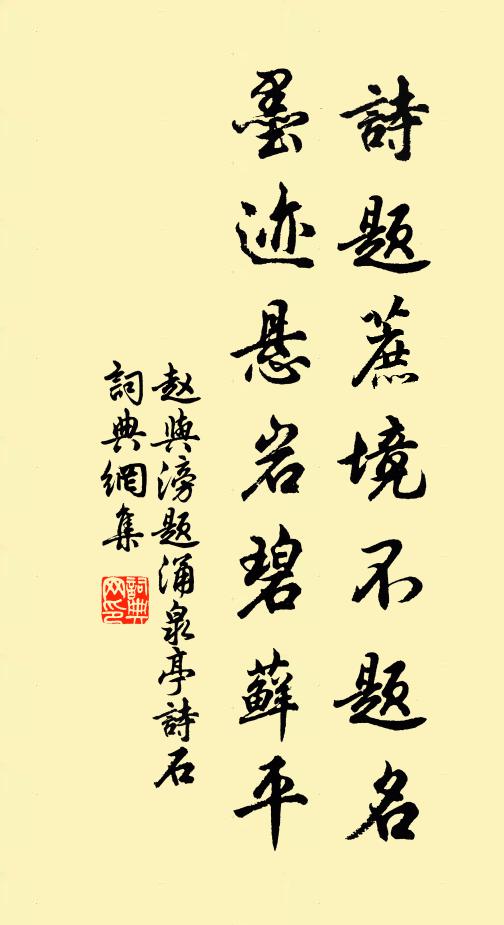 詩題蔗境不題名
墨迹悬岩碧蘚平
赵與滂题涌泉亭詩石
詞典網集
詞典网印